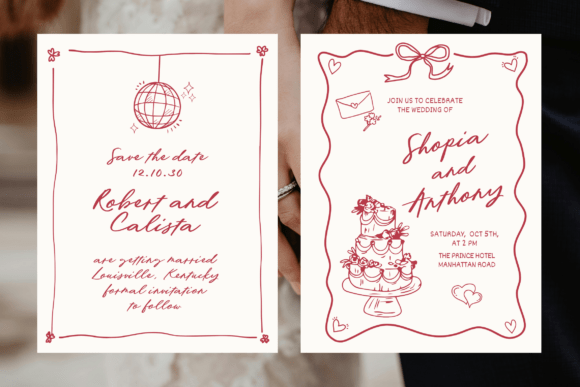 Save the date
12.10.30
Robert and
Calista
are getting married
Louisville, Kentucky
formal invitation
to follow
JOIN US TO CELEBRATE
THE WEDDING OF
Shopia
and
Anthony
SATURDAY, OCT 5TH,
AT 2 PM
THE PRINCE HOTEL
MANHATTAN ROAD